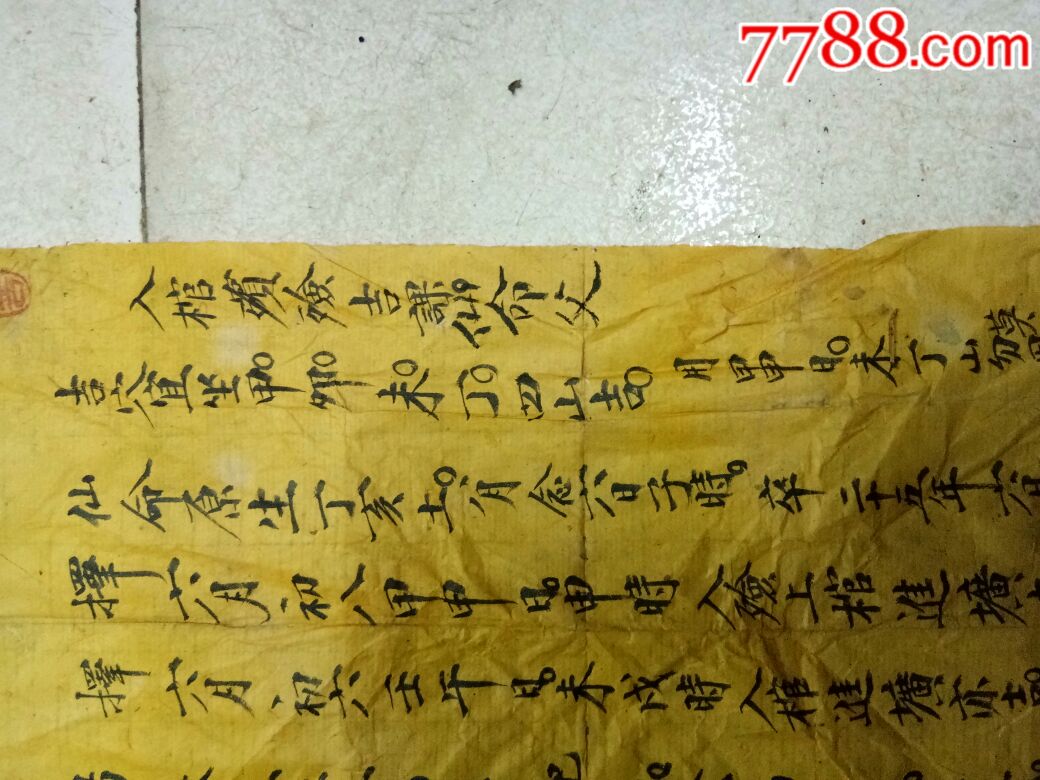 7788.com
入棺殯殮吉課仙命父
吉穴宜坐甲卯未丁四山吉
用甲申日未丁山勿莫
仙命原生丁亥土月念六日子時卒二十五年六月
擇六月初八甲申日申時入殮上棺進壙
擇六月初六壬午日未戌時入棺進壙亦吉